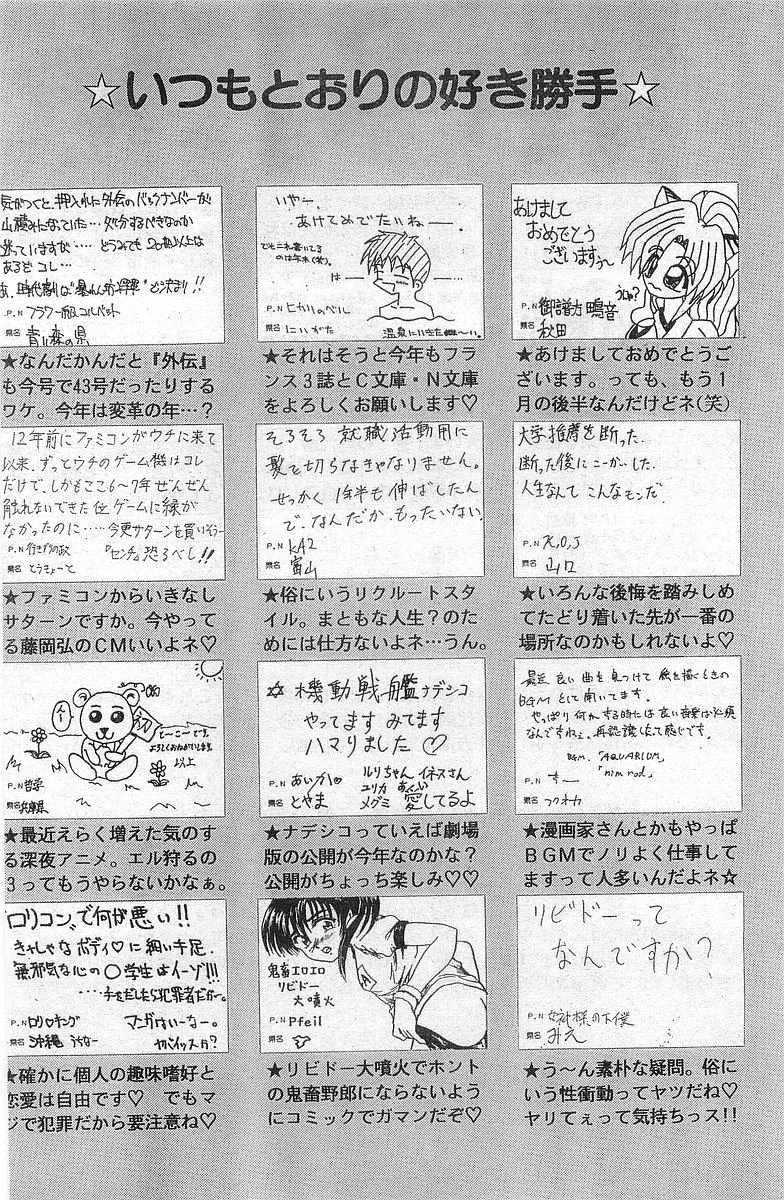 ☆いつもとおりの好き勝手☆
あけまして
おめでとう
ございますぅ〜
うにゅ?
P.N
県名 秋田
★あけましておめでとうご
ざいます。っても、もう1
月の後半なんだけどネ(笑)
いやー、
あけてめでたいね——。
でもこれ書いてる
のは年末(笑)。
は——
P.N ヒカリのベル
県名 にいがた
★それはそうと今年もフラ
ンス3誌とC文庫・N文庫
をよろしくお願いします♡
気がつくと、押入れに外伝のバックナンバーが
山積みになっていた…処分するべきなのか
迷っていますが…どうみても20冊以上は
あるぞコレ…
P.N フラワー
県名 青い森の県
★なんだかんだと『外伝』
も今号で43号だったりする
ワケ。今年は変革の年…?
大学推薦を断った。
断った後にこーかいした。
人生なんてこんなモンだ。
P.N K,O,J
県名 山口
★いろんな後悔を踏みしめ
てたどり着いた先が一番の
場所なのかもしれないよ♡
そろそろ就職活動用に
髪を切らなきゃなりません。
せっかく1年半も伸ばしたん
で、なんだかもったいない。
P.N KA2
県名 富山
★俗にいうリクルートスタ
イル。まともな人生?のた
めには仕方ないよネ…うん。
12年前にファミコンがウチに来て
以来、ずっとウチのゲーム機はコレ
だけで、しかもここ6〜7年ぜんぜん
触れないできた位ゲームに縁が
なかったのに……今更サターンを買いそう…
『センチ』恐るべし!!
P.N 行きずりの政
県名 とうきょーと
★ファミコンからいきなし
サターンですか。今やって
る藤岡弘のCMいいよネ♡
最近良い曲を見つけて絵を描くときの
BGMとして聞いてます。
やっぱり何かする時には良い音楽は必須
なんですねぇ。再認識しなって感じです。
BGM.「AQUARIUM」
「nim rod」
P.N ちー
県名 フクオカ
★漫画家さんとかもやっぱ
BGMでノリよく仕事して
ますって人多いんだよネ☆
☆機動戦艦ナデシコ
やってます みてます
ハマりました♡
P.N あいか
県名 とやま
ルリちゃん イネスさん
ユリカ
メグミ 愛してるよ
★ナデシコっていえば劇場
版の公開が今年なのかな?
公開がちょっち楽しみ♡♡
初
どーこーです。
よろしくおねがいします。
以上
P.N 哲学
県名 兵庫県
★最近えらく増えた気のす
る深夜アニメ。エル狩るの
3ってもうやらないかなぁ。
リビドーって
なんですか?
P.N 女神様の下僕
県名 みえ
★う〜ん素朴な疑問。俗に
いう性衝動ってヤツだね♡
ヤリてぇって気持ちっス!!
鬼畜エロエロ
リビドー
大噴火
P.N Pfeil
県名
★リビドー大噴火でホント
の鬼畜野郎にならないよう
にコミックでガマンだぞ♡